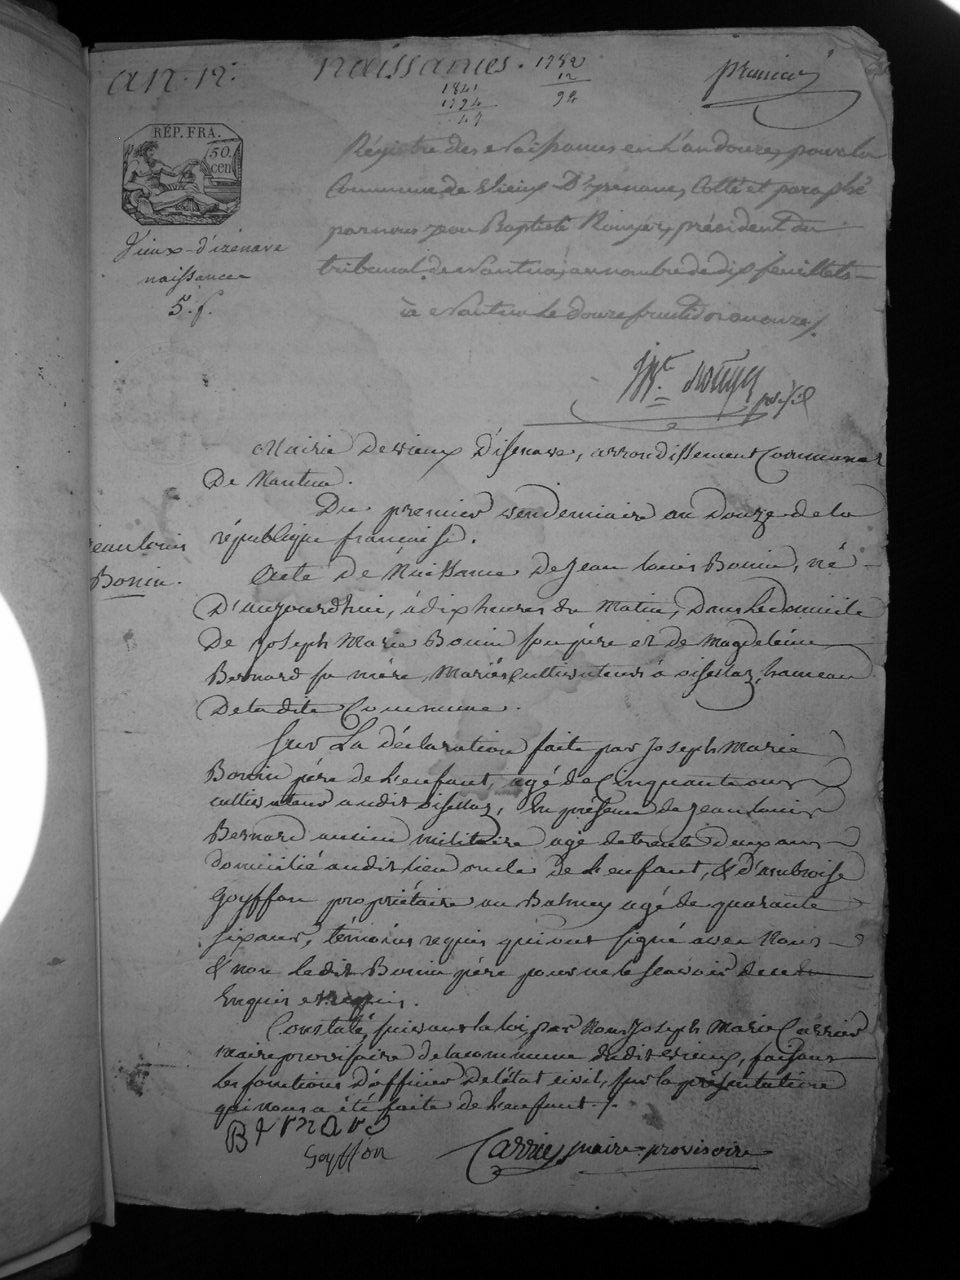 an. 12. naissances. 1792 premier
12
1841 94
1794
47
RÉP. FRA.
50
cen
Régistre des Naissances en L'an douze, pour la
Commune de Vieux-D'izenave, Cotté et paraphé
par nous jean Baptiste Rouyer, président du
tribunal de Nantua, au nombre de dix feuillets
à Nantua Le douze fructidor an onze./.
Vieux-d'izénave
naissance
5. f.
Bte. Rouyer
Mairie De vieux D'isenave, arrondissement Communal
De Nantua.
Du premier vendemiaire an Douze de la
république française.
jean louis
Bonin.
Acte De Naissance De Jean louis Bonin, né
D'aujourdhui, à dix heures du Matin, Dans Le domicile
De Joseph Marie Bonin son père et de Magdeleine
Bernard sa mère, Mariés Cultivateurs à hameau
De la dite Commune.
Sur La déclaration faite par Joseph Marie
Bonin père de L'enfant, agé de Cinquante ans
cultivateur audit En présence de Jean louis
Bernard ancien militaire agé de trente Deux ans
Domicilié audit Lieu oncle de L'enfant, & D'ambroise
Goyffon propriétaire au Balmey agé de quarante
six ans, témoins requis qui ont signé avec Nous
& non Le dit Bonin père pour ne le scavoir de ce
Enquis et requis.
Constaté, suivant la loi, par Nous Joseph Marie Carrier
maire provisoire de la commune dudit vieux, faisant
les fonctions D'officier De l'état civil, sur la présentation
qui nous a été faite de L'enfant./.
Bernard
Goyffon Carrier maire-provisoire